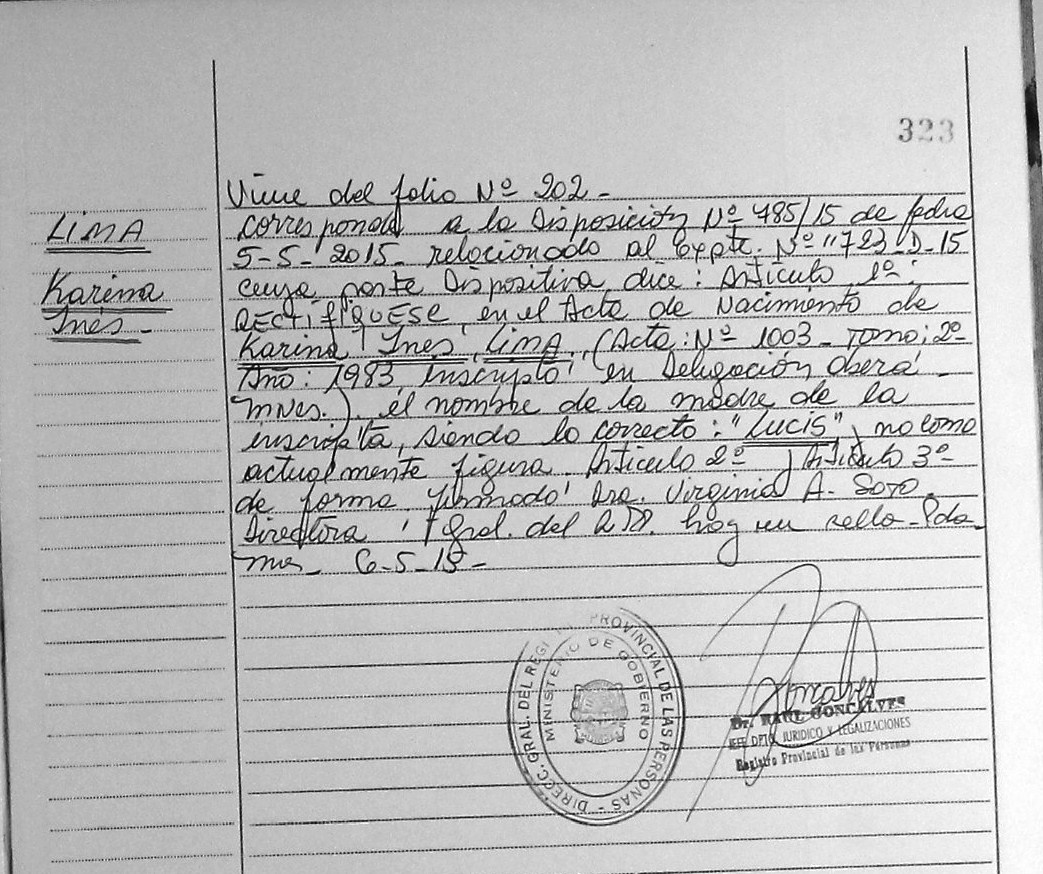 323
Viene del folio Nº 202-
LIMA
Karina
Inés-
corresponde a la Disposición Nº 785/15 de fecha
5-5-2015- relacionado al Expte. Nº "723-D-15
cuya parte Dispositiva dice: Artículo 1º:
RECTIFIQUESE, en el Acta de Nacimiento de
Karina Ines LIMA, (Acta: Nº 1003- Tomo: 2º-
Año: 1983, Inscripto en Delegación Oberá-
Mnes.). el nombre de la madre de la
inscripta, siendo lo correcto: "LUCIS", no como
actualmente figura. Artículo 2º Artículo 3º-
de forma. Firmado Dra. Virginia A. Soto.
Directora Gral. del R.P.P. hay un sello-Pda-
mes- 6-5-15-
DIRECC. GRAL. DEL REGI PROVINCIAL DE LAS PERSONAS -
MINISTERIO DE GOBIERNO
Goncalves
Dr. RAUL GONCALVES
JEFE DPTO. JURIDICO Y LEGALIZACIONES
Registro Provincial de las Personas